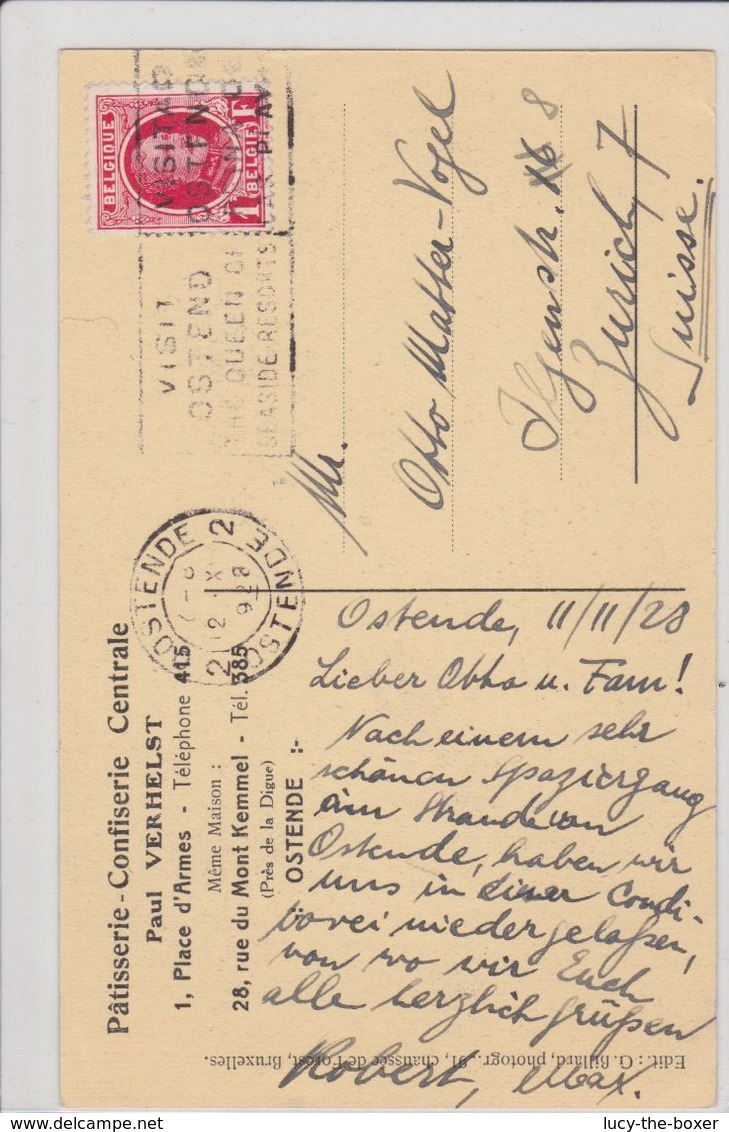 BELGIQUE
1F
BELGIE
VISIT
OSTEND
THE QUEEN OF
SEASIDE-RESORTS
VISIT
OSTEND
OSTENDE 2 OSTENDE
Pâtisserie - Confiserie Centrale
Paul VERHELST
1, Place d'Armes - Téléphone 415
Même Maison :
28, rue du Mont Kemmel - Tél. 385
(Près de la Digue)
OSTENDE :-
Mr.
Otto Matter-Vogel
Ilgenstr. 16 8
Zurich 7
Suisse.
Ostende, 11/11/28
Lieber Otto u. Fam!
Nach einem sehr
schönen Spaziergang
am Strande von
Ostende, haben wir
uns in einer Condi-
torei niedergelaßen,
von wo wir Euch
alle herzlich grüßen
Robert, Max.
Edit : G. Billard, photogr., 91, chaussée de Forest, Bruxelles.
lucy-the-boxer